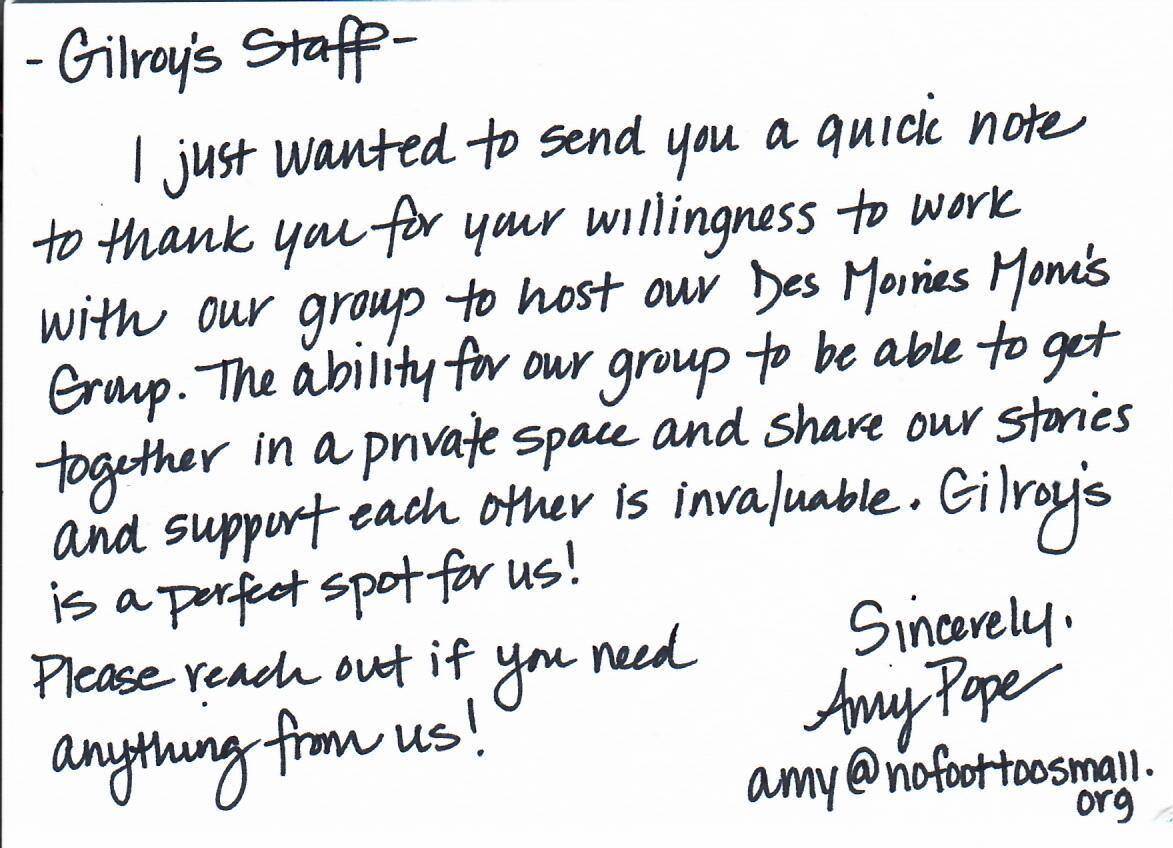 - Gilroy's Staff -
I just wanted to send you a quick note
to thank you for your willingness to work
with our group to host our Des Moines Mom's
Group. The ability for our group to be able to get
together in a private space and share our stories
and support each other is invaluable. Gilroy's
is a perfect spot for us!
Please reach out if you need
anything from us!
Sincerely.
Amy Pope
amy@nofoottoosmall.
org